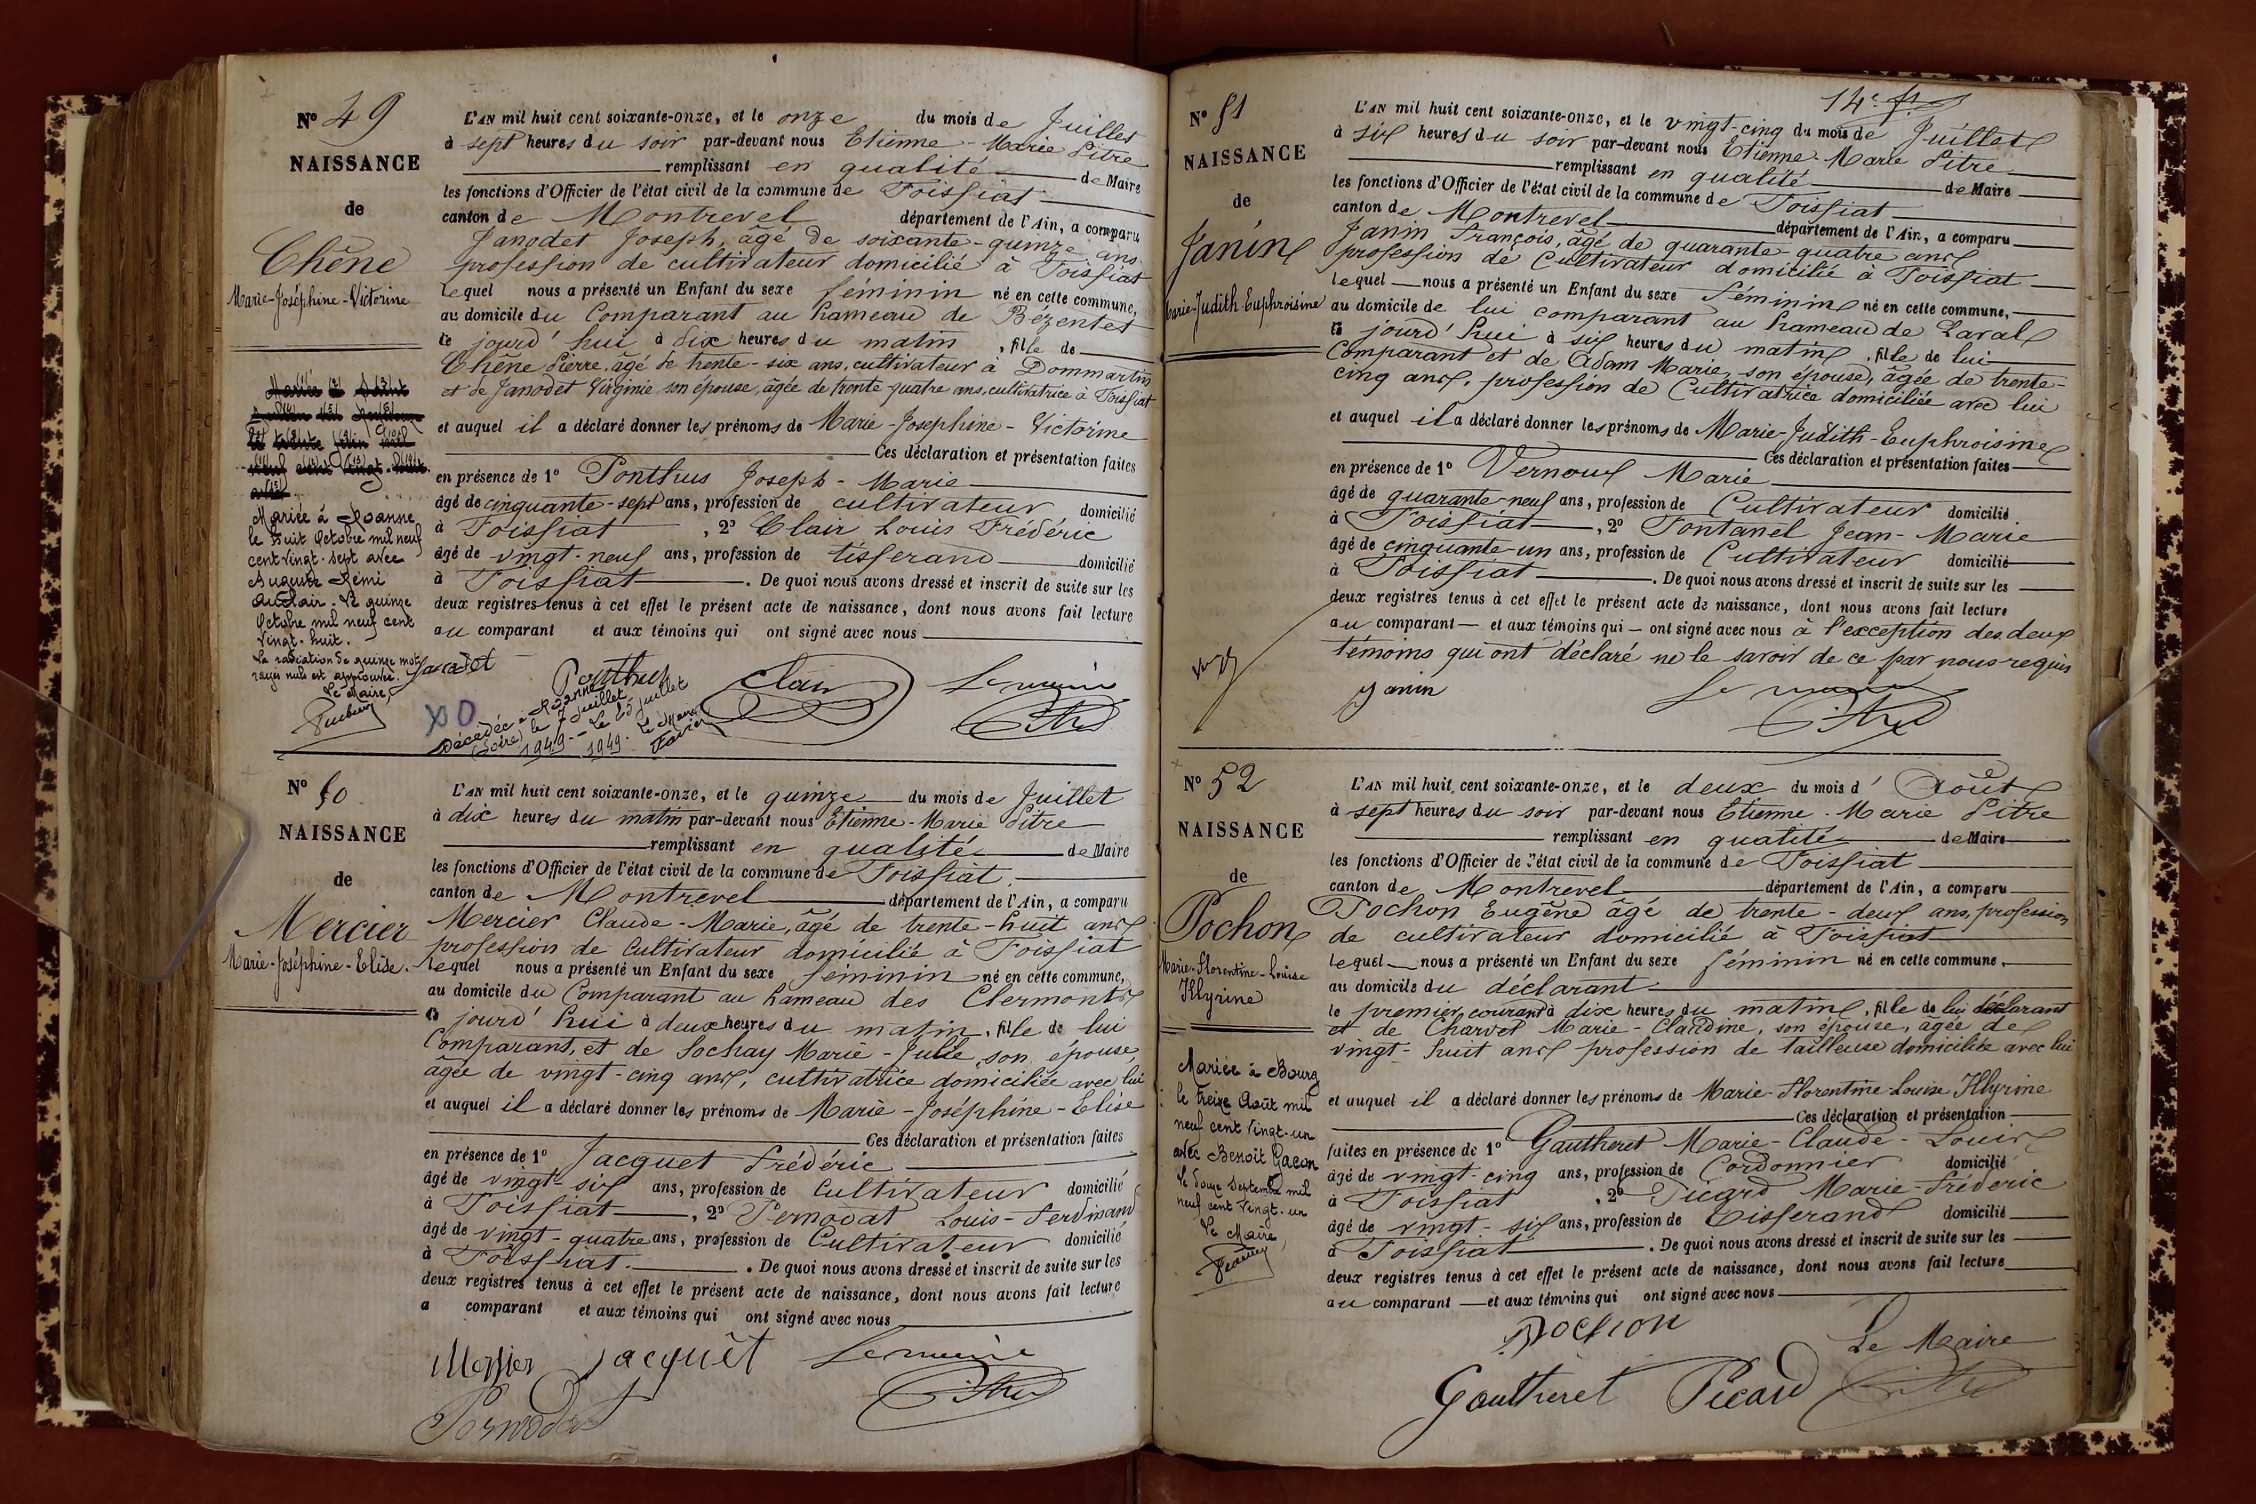 N° 49
NAISSANCE
de
Chêne
Marie-Joséphine-Victorine
Mariée à Roanne
le huit Octobre mil neuf
cent vingt-sept avec
Auguste Rémi
Auclair. Le quinze
Octobre mil neuf cent
vingt-huit.
La radiation de quinze mots
rayés nuls est approuvée.
Le Maire,
L'AN mil huit cent soixante-onze, et le onze du mois de Juillet
à sept heures du soir par-devant nous Etienne-Marie Pitre
remplissant en qualité de Maire
les fonctions d'Officier de l'état civil de la commune de Foissiat
canton de Montrevel département de l'Ain, a comparu
Janodet Joseph, âgé de soixante-quinze ans
profession de cultivateur domicilié à Foissiat
lequel nous a présenté un Enfant du sexe féminin né en cette commune,
au domicile du Comparant au hameau de Bézentet
ce jourd'hui à dix heures du matin, fille de
Chêne Pierre, âgé de trente-six ans, cultivateur à Dommartin
et de Janodet Virginie son épouse, âgée de trente quatre ans, cultivatrice à Foissiat
et auquel il a déclaré donner les prénoms de Marie-Josephine-Victorine
Ces déclaration et présentation faites
en présence de 1° Ponthus Joseph-Marie
âgé de cinquante-sept ans, profession de cultivateur domicilié
à Foissiat, 2° Clair Louis Frédéric
âgé de vingt-neuf ans, profession de tisserand domicilié
à Foissiat. De quoi nous avons dressé et inscrit de suite sur les
deux registres tenus à cet effet le présent acte de naissance, dont nous avons fait lecture
au comparant et aux témoins qui ont signé avec nous
Janodet
Ponthus
Clair
Le maire
Pitre
Décédée à Roanne
(Loire) le 7 Juillet
1949 - Le 25 juillet
1949. Le Maire
N° 50
NAISSANCE
de
Mercier
Marie-Joséphine-Elise.
L'AN mil huit cent soixante-onze, et le quinze du mois de Juillet
à dix heures du matin par-devant nous Etienne-Marie Pitre
remplissant en qualité de Maire
les fonctions d'Officier de l'état civil de la commune de Foissiat
canton de Montrevel département de l'Ain, a comparu
Mercier Claude-Marie, âgé de trente-huit ans
profession de cultivateur domicilié à Foissiat
lequel nous a présenté un Enfant du sexe féminin né en cette commune,
au domicile du Comparant au hameau des Clermonts
ce jourd'hui à deux heures du matin, fille de lui
Comparant, et de Sochay Marie-Julie, son épouse,
âgée de vingt-cinq ans, cultivatrice domiciliée avec lui
et auquel il a déclaré donner les prénoms de Marie-Joséphine-Elise
Ces déclaration et présentation faites
en présence de 1° Jacquet Frédéric
âgé de vingt-six ans, profession de Cultivateur domicilié
à Foissiat, 2° Pernodat Louis-Ferdinand
âgé de vingt-quatre ans, profession de Cultivateur domicilié
à Foissiat. De quoi nous avons dressé et inscrit de suite sur les
deux registres tenus à cet effet le présent acte de naissance, dont nous avons fait lecture
a comparant et aux témoins qui ont signé avec nous
Mersier Jacquet Le maire
Pernodat Pitre
14e f.
N° 51
NAISSANCE
de
Janin
Marie-Judith Euphroisine
L'AN mil huit cent soixante-onze, et le vingt-cinq du mois de Juillet
à six heures du soir par-devant nous Etienne-Marie Pitre
remplissant en qualité de Maire
les fonctions d'Officier de l'état civil de la commune de Foissiat
canton de Montrevel département de l'Ain, a comparu
Janin François, âgé de quarante quatre ans
profession de Cultivateur domicilié à Foissiat
lequel nous a présenté un Enfant du sexe féminin né en cette commune,
au domicile de lui comparant au hameau de Laval
ce jourd'hui à six heures du matin, fille de lui
Comparant et de Adam Marie, son épouse, âgée de trente-
cinq ans, profession de Cultivatrice domiciliée avec lui
et auquel il a déclaré donner les prénoms de Marie-Judith-Euphroisine
Ces déclaration et présentation faites
en présence de 1° Vernoux Marie
âgé de quarante-neuf ans, profession de Cultivateur domicilié
à Foissiat, 2° Fontanel Jean-Marie
âgé de cinquante-un ans, profession de Cultivateur domicilié
à Foissiat. De quoi nous avons dressé et inscrit de suite sur les
deux registres tenus à cet effet le présent acte de naissance, dont nous avons fait lecture
au comparant et aux témoins qui ont signé avec nous à l'exception des deux
témoins qui ont déclaré ne le savoir de ce par nous requis
Janin
Le maire
Pitre
N° 52
NAISSANCE
de
Pochon
Marie-Florentine-Louise
Illyrine
Mariée à Bourg
le treize Août mil
neuf cent vingt-un
avec Benoît Gacon
Le douze Septembre mil
neuf cent vingt-un
Le Maire,
L'AN mil huit cent soixante-onze, et le deux du mois d'Août
à sept heures du soir par-devant nous Etienne-Marie Pitre
remplissant en qualité de Maire
les fonctions d'Officier de l'état civil de la commune de Foissiat
canton de Montrevel département de l'Ain, a comparu
Pochon Eugène âgé de trente-deux ans, profession
de cultivateur domicilié à Foissiat
lequel nous a présenté un Enfant du sexe féminin né en cette commune,
au domicile du déclarant
le premier courant à dix heures du matin, fille de lui déclarant
et de Charvet Marie-Claudine, son épouse, âgée de
vingt-huit ans profession de tailleuse domiciliée avec lui
et auquel il a déclaré donner les prénoms de Marie-Florentine-Louise Illyrine
Ces déclaration et présentation
faites en présence de 1° Gautheret Marie-Claude-Louis
âgé de vingt-cinq ans, profession de Cordonnier domicilié
à Foissiat, 2° Picard Marie-Fréderic
âgé de vingt-six ans, profession de Tisserand domicilié
à Foissiat. De quoi nous avons dressé et inscrit de suite sur les
deux registres tenus à cet effet le présent acte de naissance, dont nous avons fait lecture
au comparant et aux témoins qui ont signé avec nous
Pochon
Le Maire
Gautheret Picard Pitre